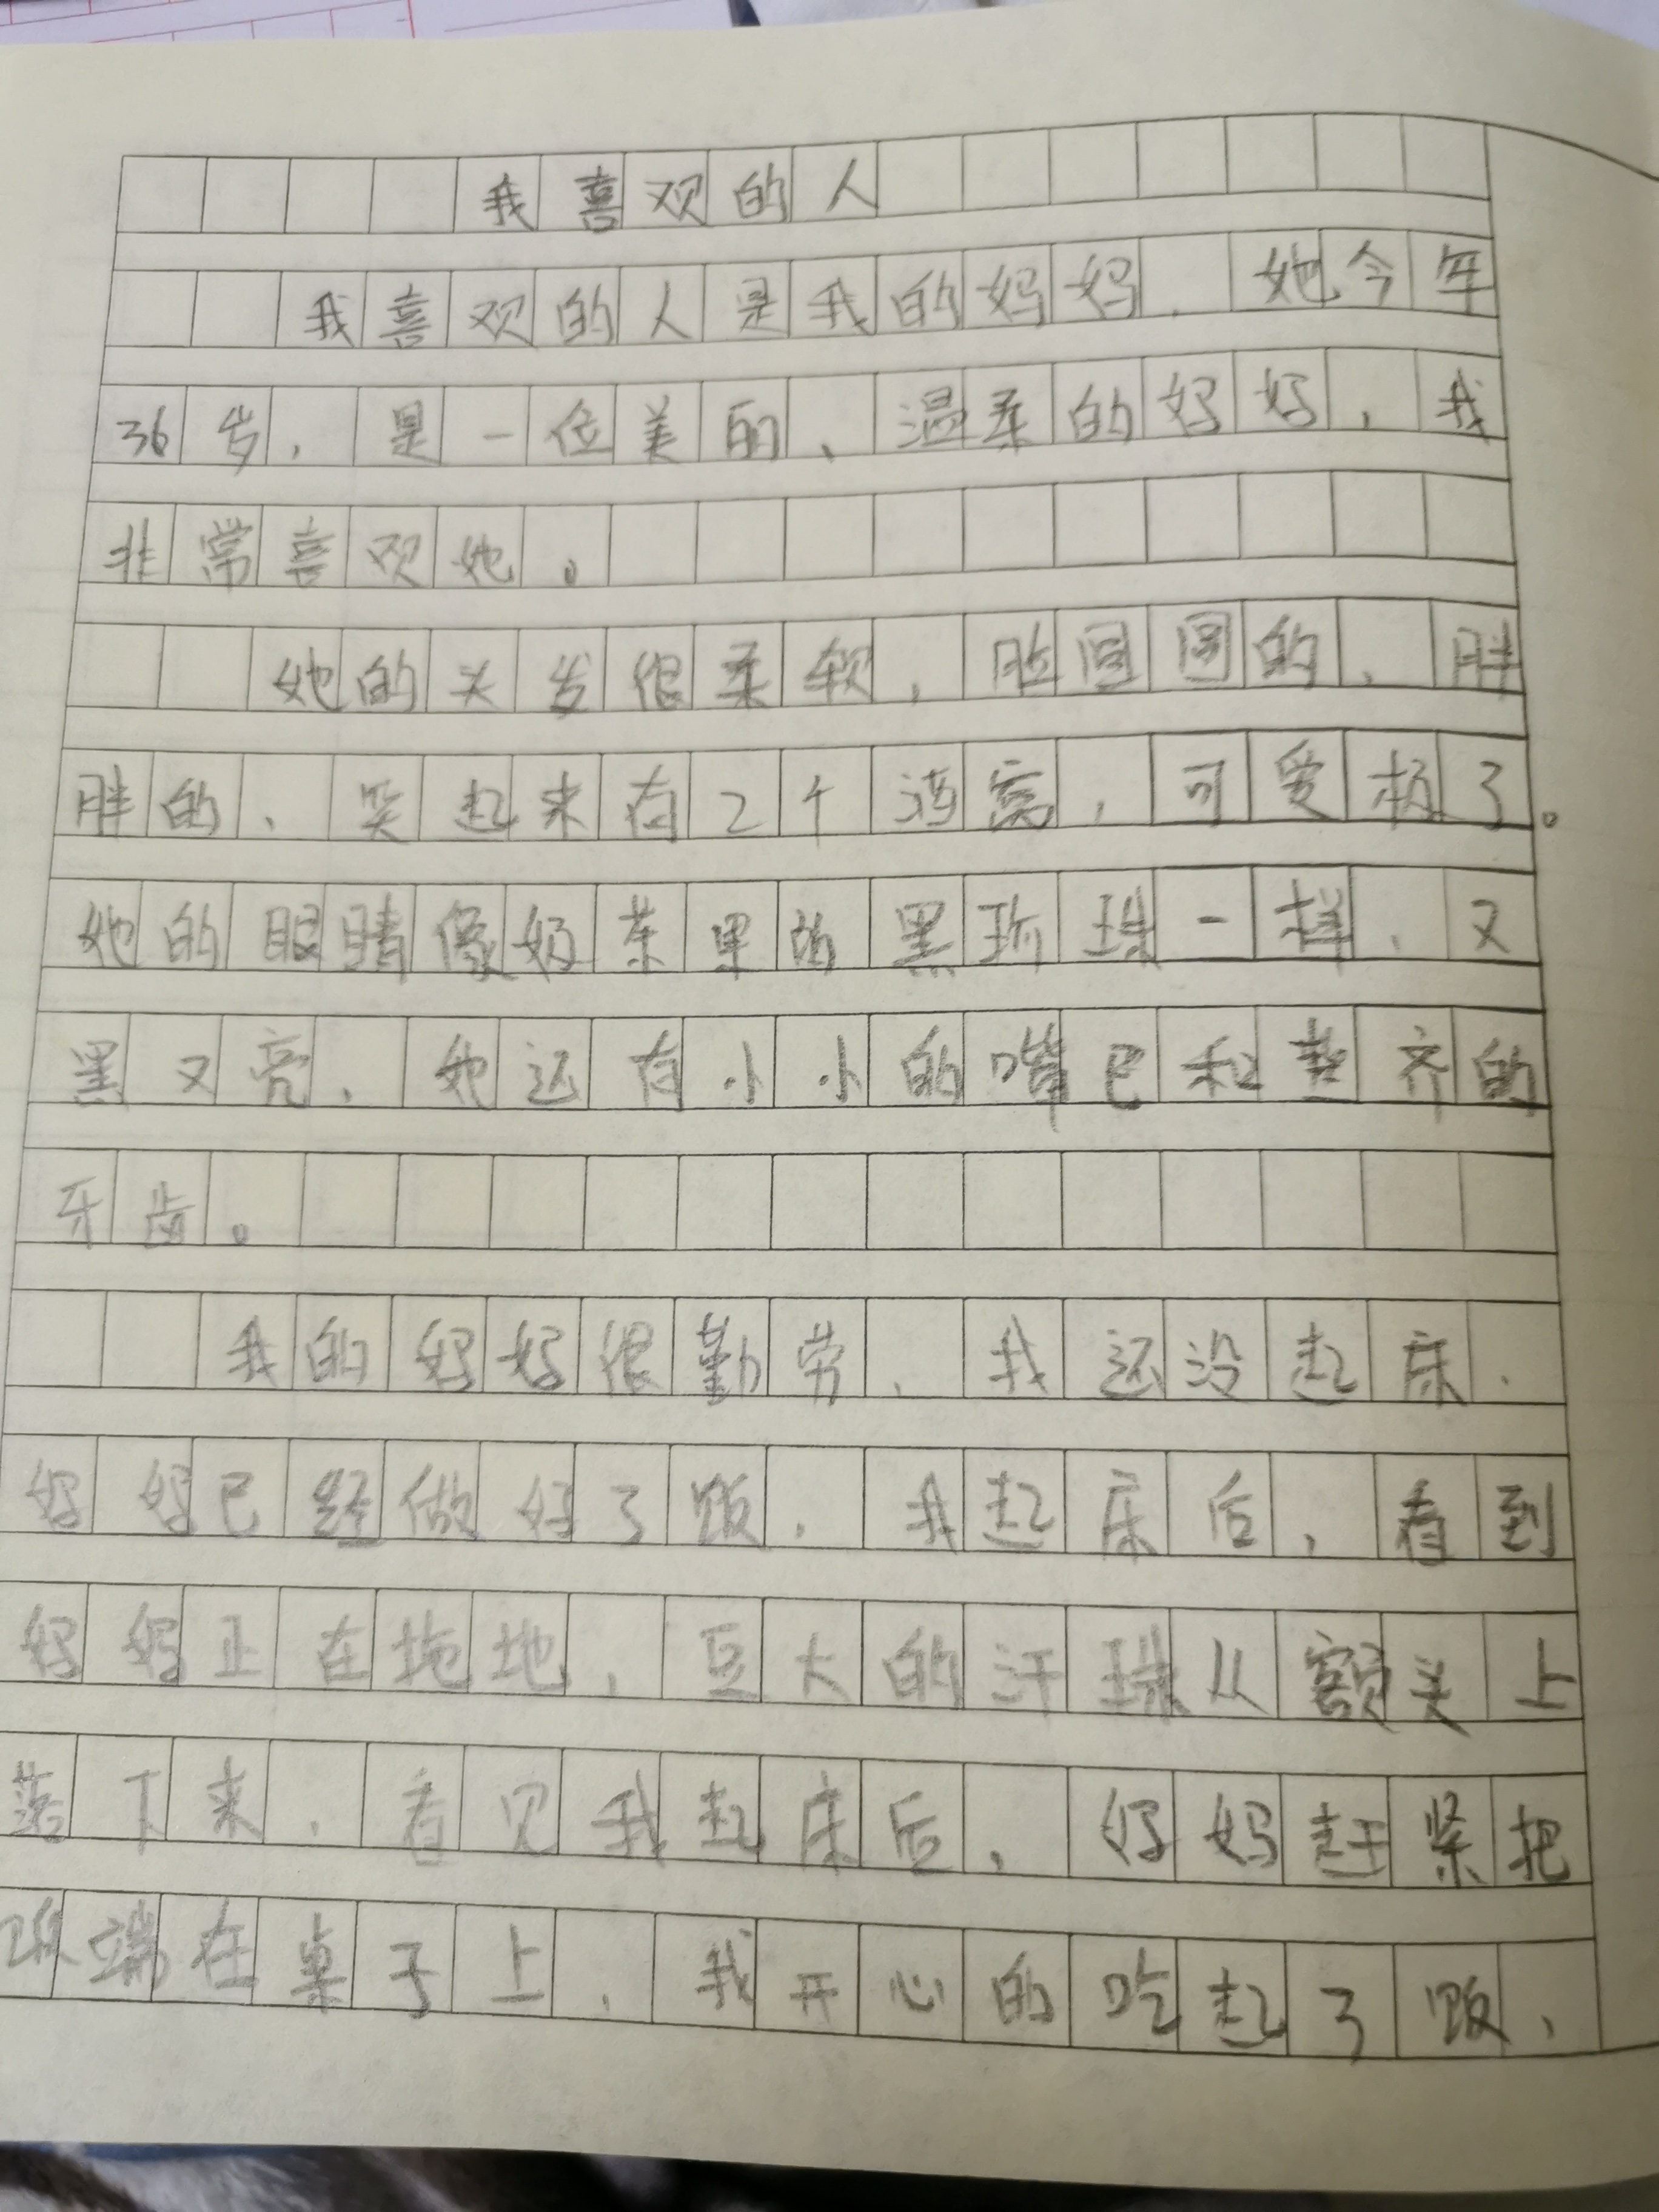 我喜欢的人
我喜欢的人是我的妈妈，她今年
36岁，是一位美丽、温柔的妈妈，我
非常喜欢她。
她的头发很柔软，脸圆圆的，胖
胖的，笑起来有2个酒窝，可爱极了。
她的眼睛像奶茶里的黑珍珠一样，又
黑又亮，她还有小小的嘴巴和整齐的
牙齿。
我的妈妈很勤劳，我还没起床，
妈妈已经做好了饭，我起床后，看到
妈妈正在拖地，豆大的汗珠从额头上
落下来，看见我起床后，妈妈赶紧把
饭端在桌子上，我开心的吃起了饭，